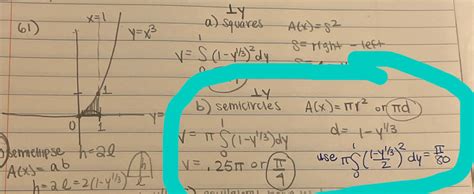 61)
x=1
y=x³
1
0 1
y=
⊥y
a) squares A(x)=s²
s=right - left
V=∫₀¹(1-y^(1/3))²dy
⊥y
b) semicircles A(x)=πr² or πd
V=π∫₀¹(1-y^(1/3))dy d=1-y^(1/3)
V=.25π or π/4 use π∫₀¹((1-y^(1/3))/2)²dy=π/80
semiellipse h=2l
A(x)=ab
h=2l=2(1-y^(1/3))